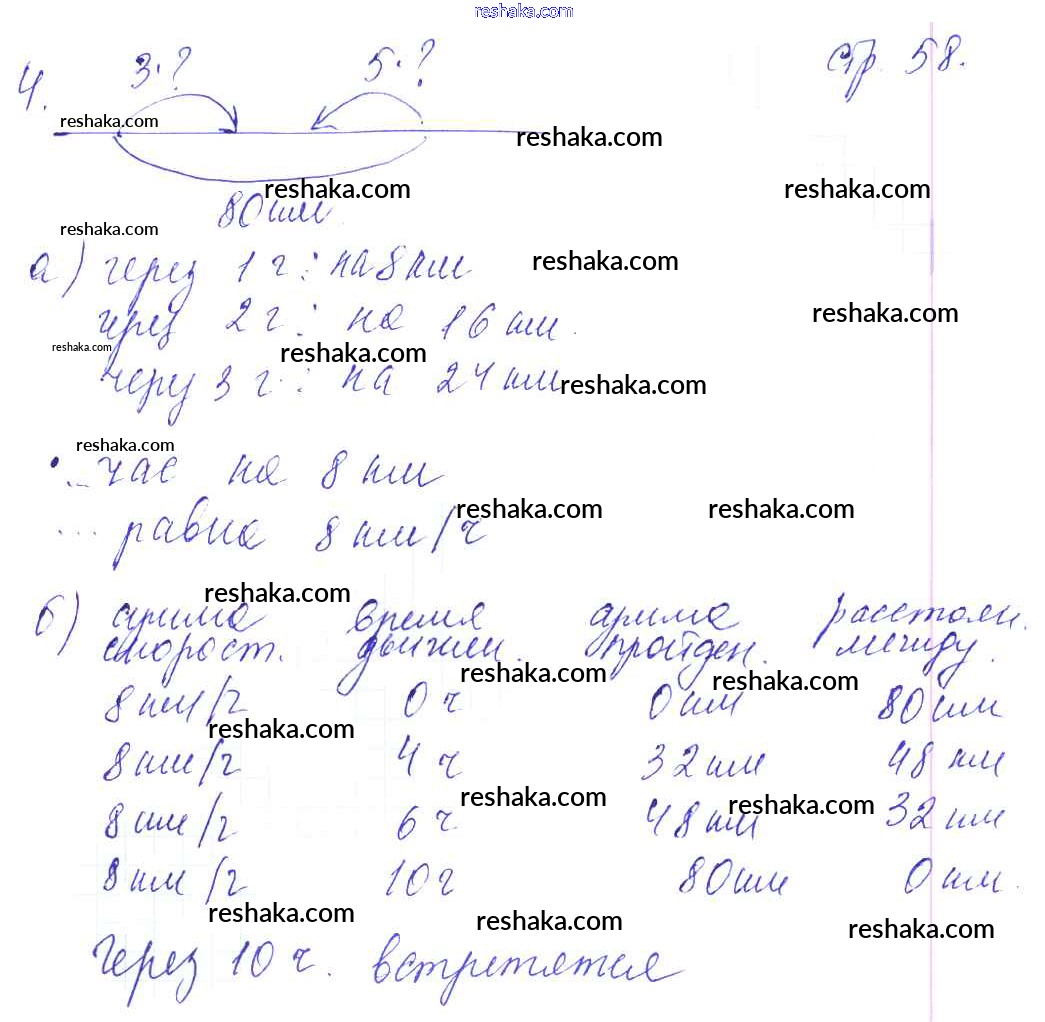 reshaka.com
стр. 58.
4. 3·? 5·?
reshaka.com
reshaka.com
reshaka.com reshaka.com
80 км
reshaka.com
а) через 1 ч: на 8 км reshaka.com
через 2 ч: на 16 км. reshaka.com
reshaka.com reshaka.com
через 3 ч: на 24 км reshaka.com
reshaka.com
... час на 8 км
reshaka.com reshaka.com
... равна 8 км/ч
reshaka.com
б) сумма время сумма расстоян.
скорост. движен. пройден. между.
reshaka.com reshaka.com
8 км/ч 0 ч 0 км 80 км
reshaka.com
8 км/ч 4 ч 32 км 48 км
reshaka.com reshaka.com
8 км/ч 6 ч 48 км 32 км
8 км/ч 10 ч 80 км 0 км.
reshaka.com reshaka.com reshaka.com
Через 10 ч. встретятся